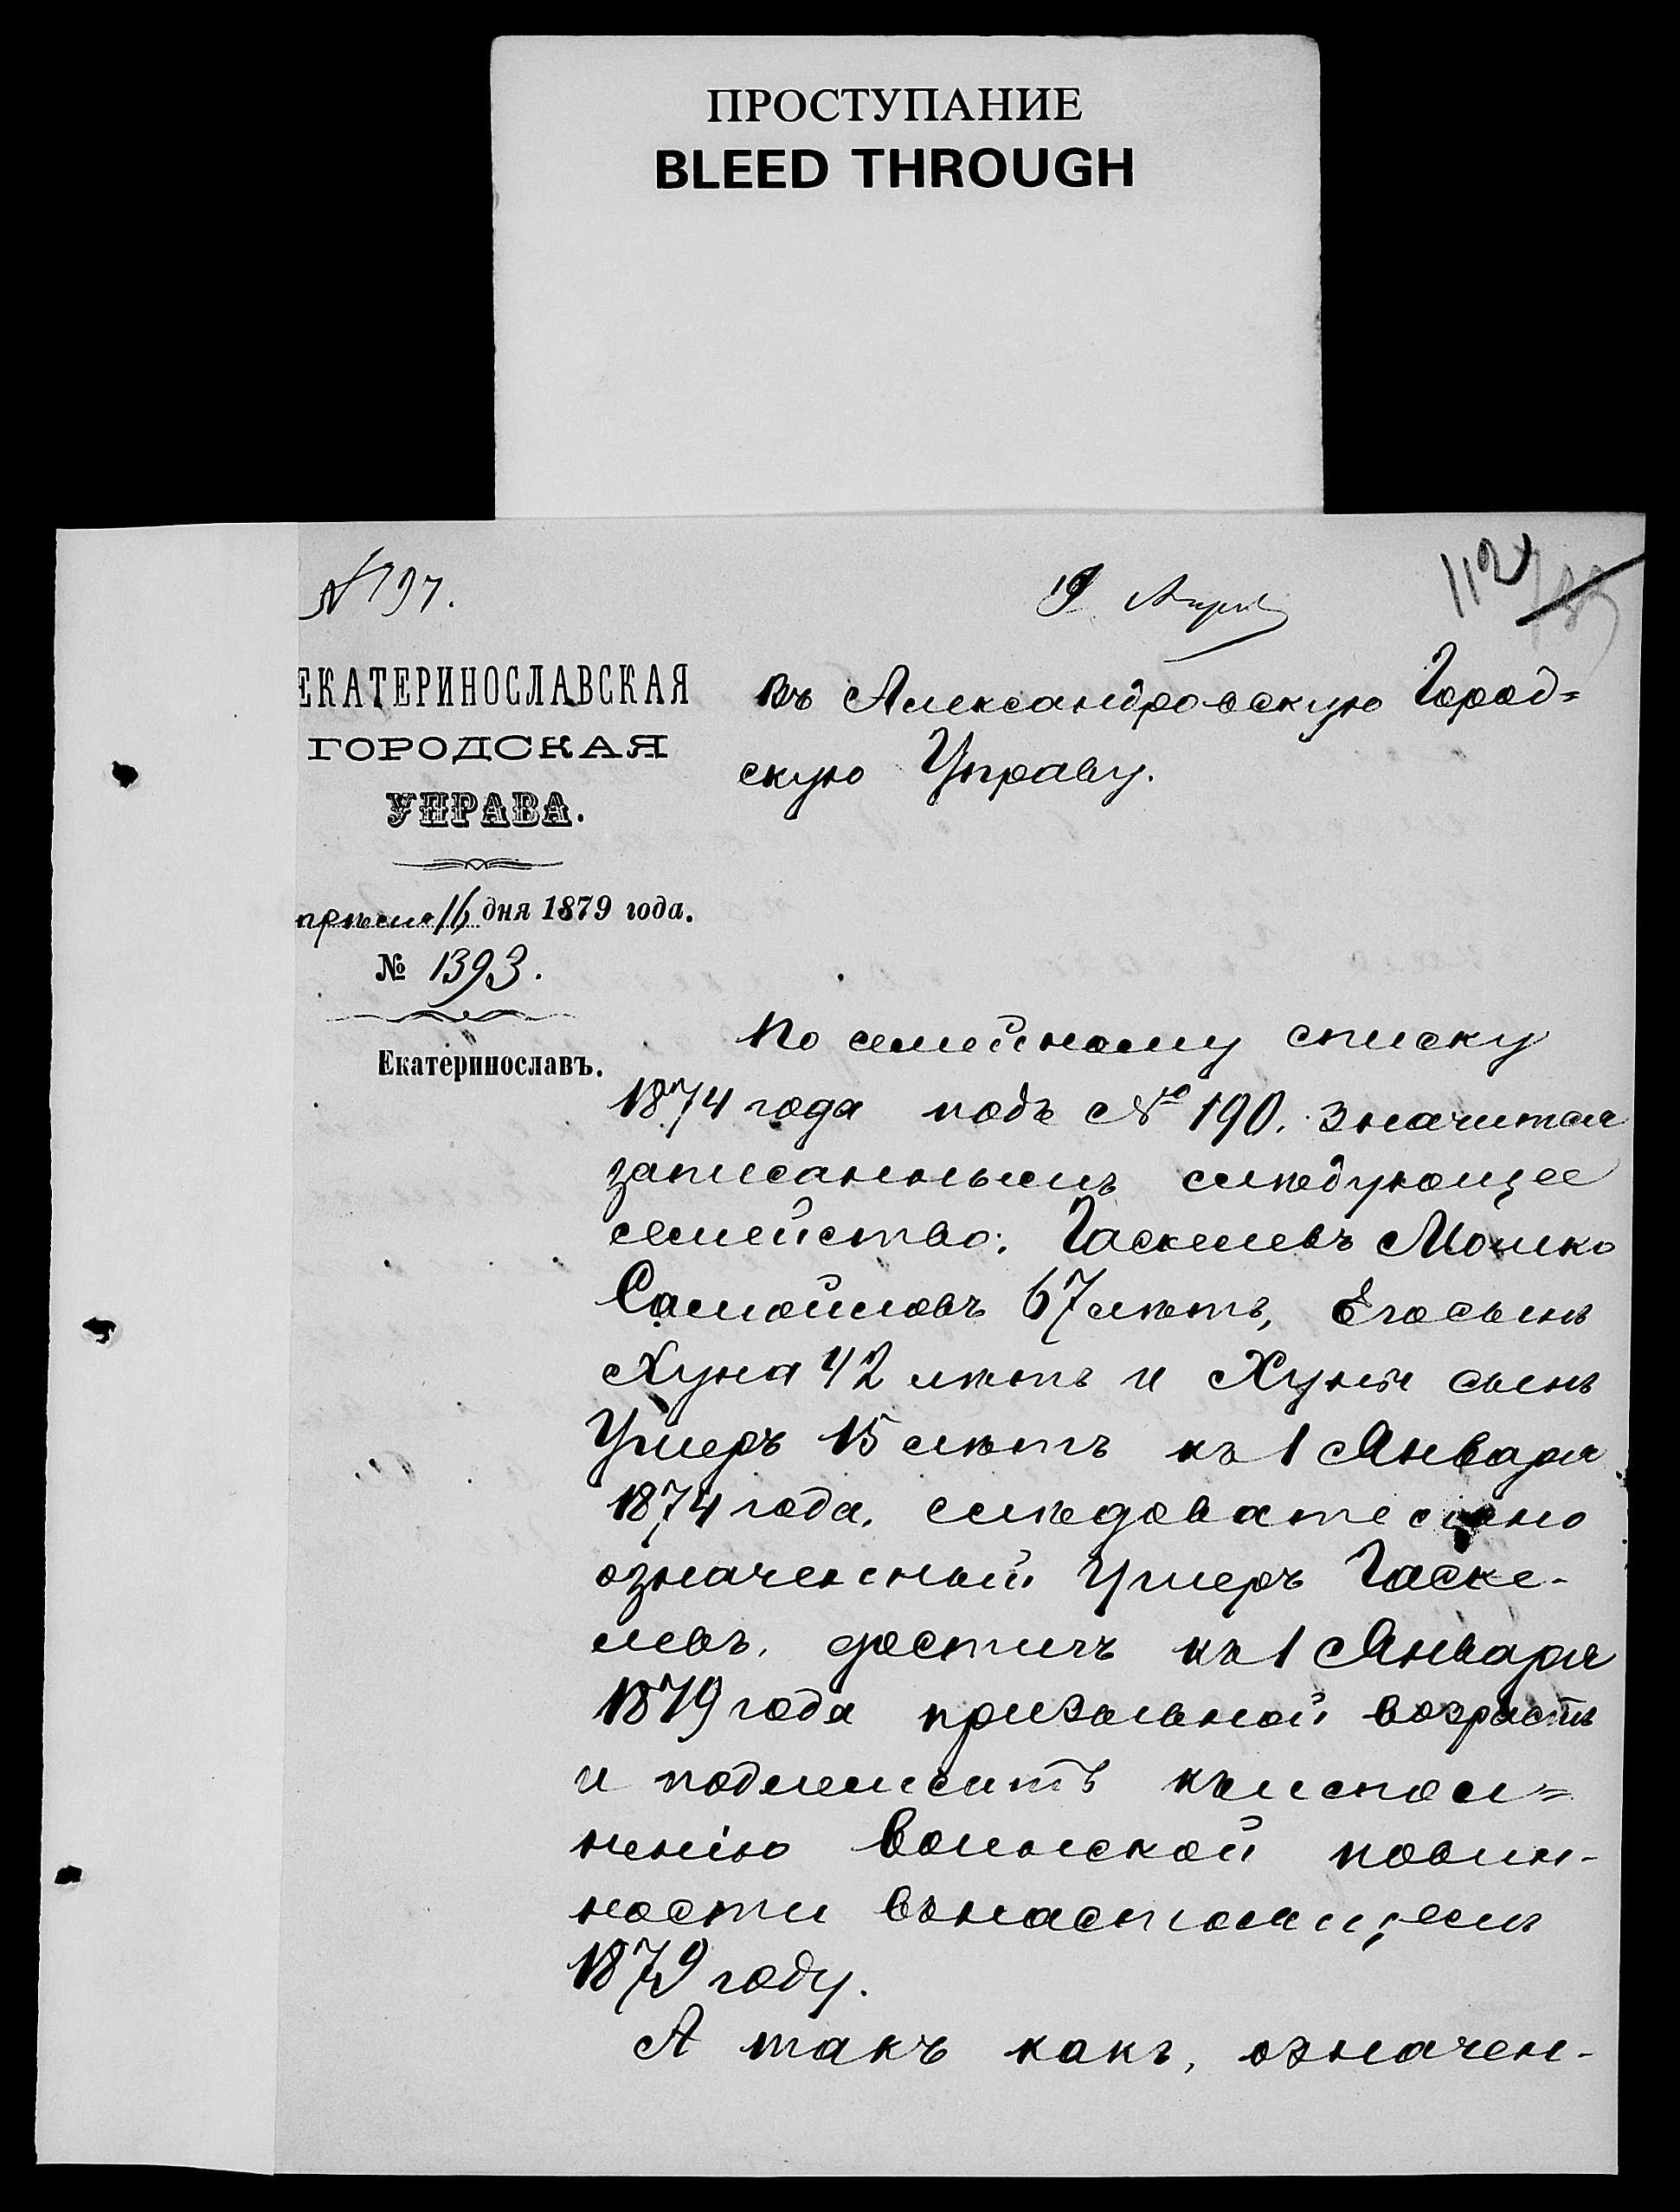 ПРОСТУПАНИЕ
BLEED THROUGH
№ 797.
19 Апрѣ
112
ЕКАТЕРИНОСЛАВСКАЯ
ГОРОДСКАЯ
УПРАВА.
прѣля 16 дня 1879 года.
№ 1393.
Екатеринославъ.
Въ Александровскую Город=
скую Управу.
По семейному списку
1874 года подъ № 190. значится
записаннымъ слѣдующее
семейство: Гаскелевъ Мошко
Самойловъ 67 лѣтъ, Его сынъ
Хуна 42 лѣтъ и Хуны сынъ
Умеръ 15 лѣтъ къ 1 Января
1874 года. слѣдовательно
означенный Умеръ Гаске-
левъ. достигъ къ 1 Января
1879 года призывной возрастъ
и подлежитъ къ испол=
ненію воинской повин-
ности въ настоящемъ
1879 году.
А такъ какъ, означен-